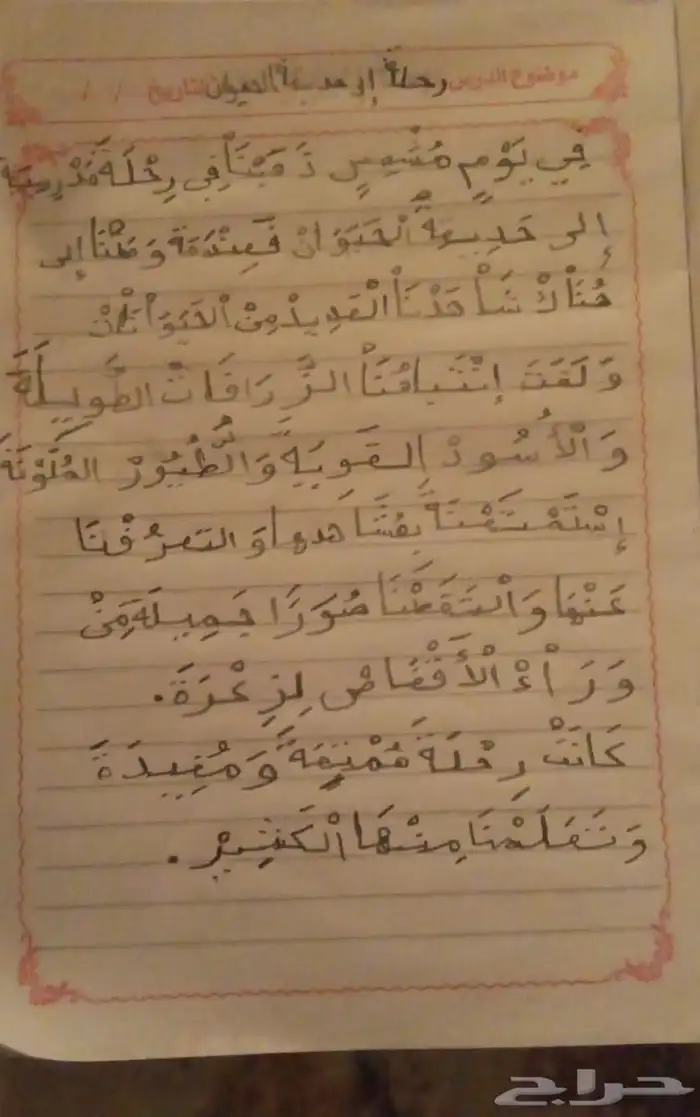 موضوع الدرس رحلة إلى حديقة الحيوان التاريخ / /
فِي يَوْمٍ مُشْمِسٍ ذَهَبْنَا فِي رِحْلَةٍ مَدْرِسِيَة
إلى حَدِيقَةِ الْحَيَوَانْ فَعِنْدَمَة وَصَلْنَا إلى
هُنَاكْ شَاهَدْنَا الْعَدِيدْ مِنْ الْحَيَوَانَاتْ
وَلَفَتَ إنْتَبَاهُنَا الزَّرَافَاتْ الطَّوِيلَة
وَالْأُسُودْ القَوِيَة وَالطُّيُورْ المُلَوَّنَة
إسْتَمْتَعْنَا بِمُشَاهدها وَالتعرُفْنَا
عَنْهَا وَالْتَقَطْنَا صُوَرًا جَمِيلَة مِنْ
وَرَاءْ الْأَقْفَاصْ لِزِعْرَة.
كَانَتْ رِحْلَةً مُمْتِعَةً وَمُفِيدَةً
وَتَعَلَمْنَا مِنْهَا الْكَثِيرْ.
حراج